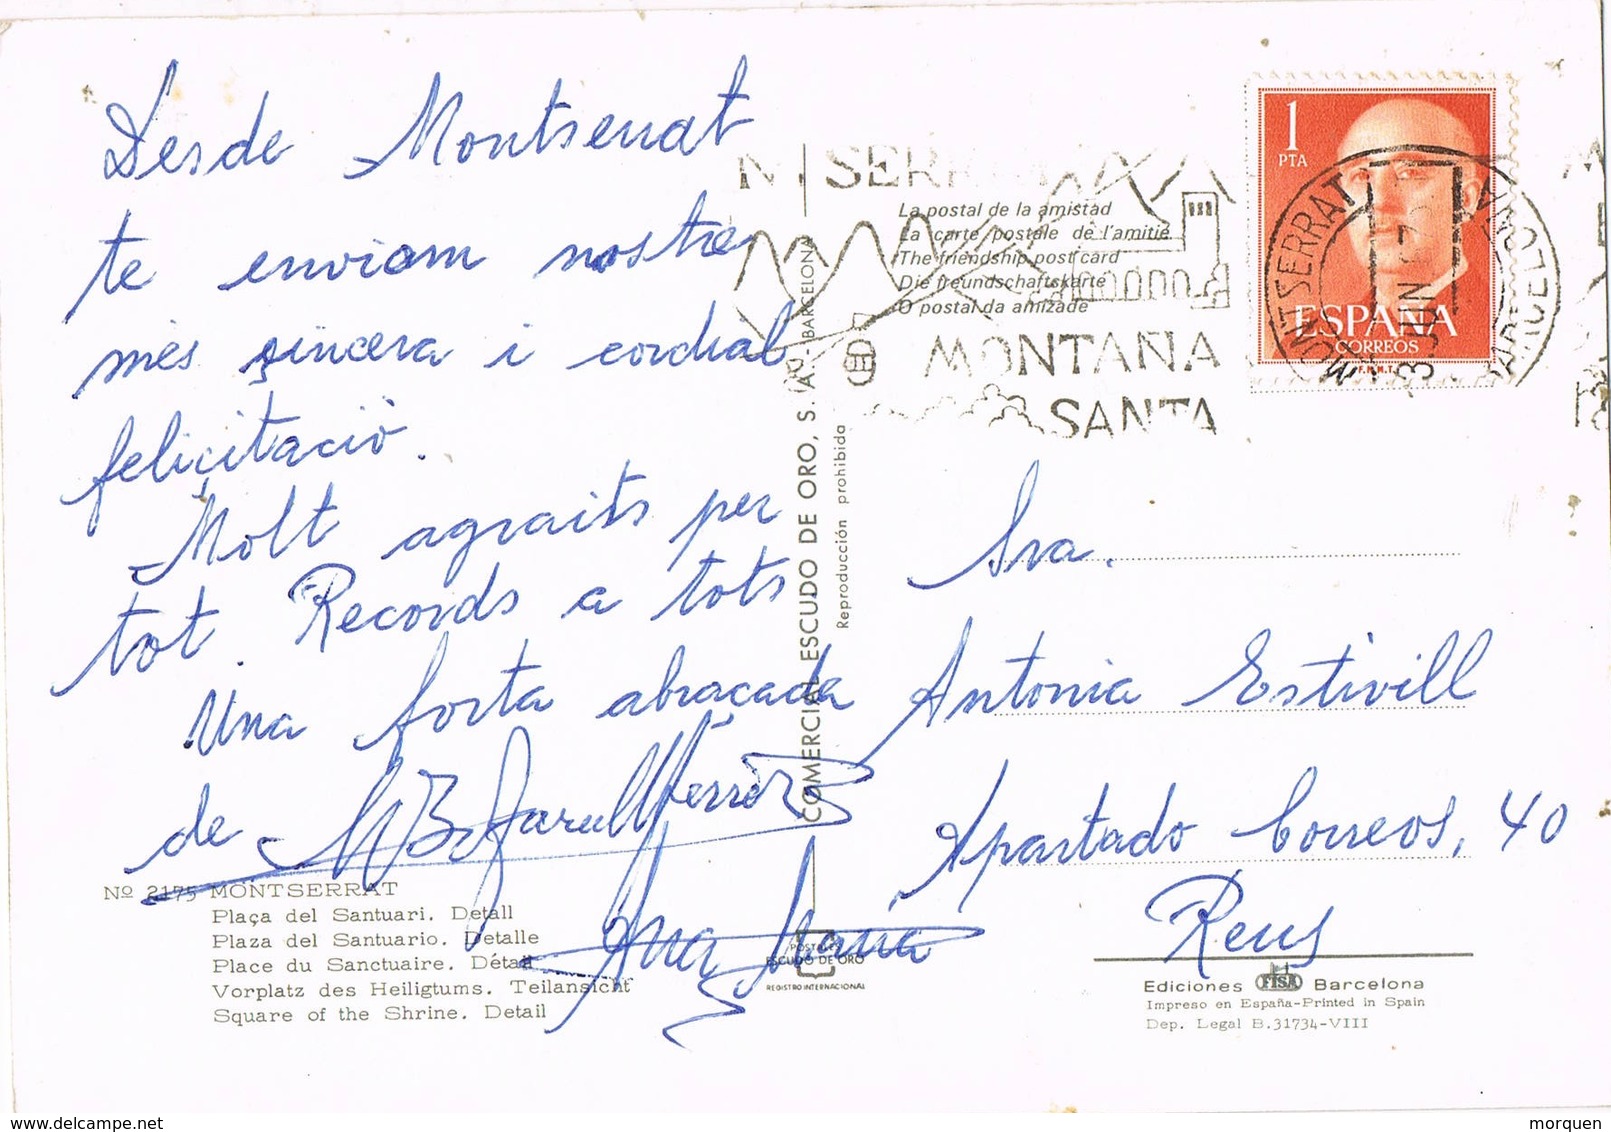 Desde Montserrat
te enviam nostre
més sincera i cordial
felicitació.
Molt agraits per
tot. Records a tots
Una forta abraçada
de
Ana Maria
Nº 2175 MONTSERRAT
Plaça del Santuari. Detall
Plaza del Santuario. Detalle
Place du Sanctuaire. Détail
Vorplatz des Heiligtums. Teilansicht
Square of the Shrine. Detail
COMERCIAL ESCUDO DE ORO, S. A. - BARCELONA
Reproducción prohibida
POSTALES
ESCUDO DE ORO
REGISTRO INTERNACIONAL
La postal de la amistad
La carte postale de l'amitié
The friendship post card
Die freundschaftskarte
O postal da amizade
MONTAÑA
SANTA
1
PTA
ESPAÑA
CORREOS
F.N.M.T.
MONTSERRAT
BARCELONA
Sra.
Antonia Estivill
Apartado Correos, 40
Reus
Ediciones FISA Barcelona
Impreso en España-Printed in Spain
Dep. Legal B.31734-VIII
morquen